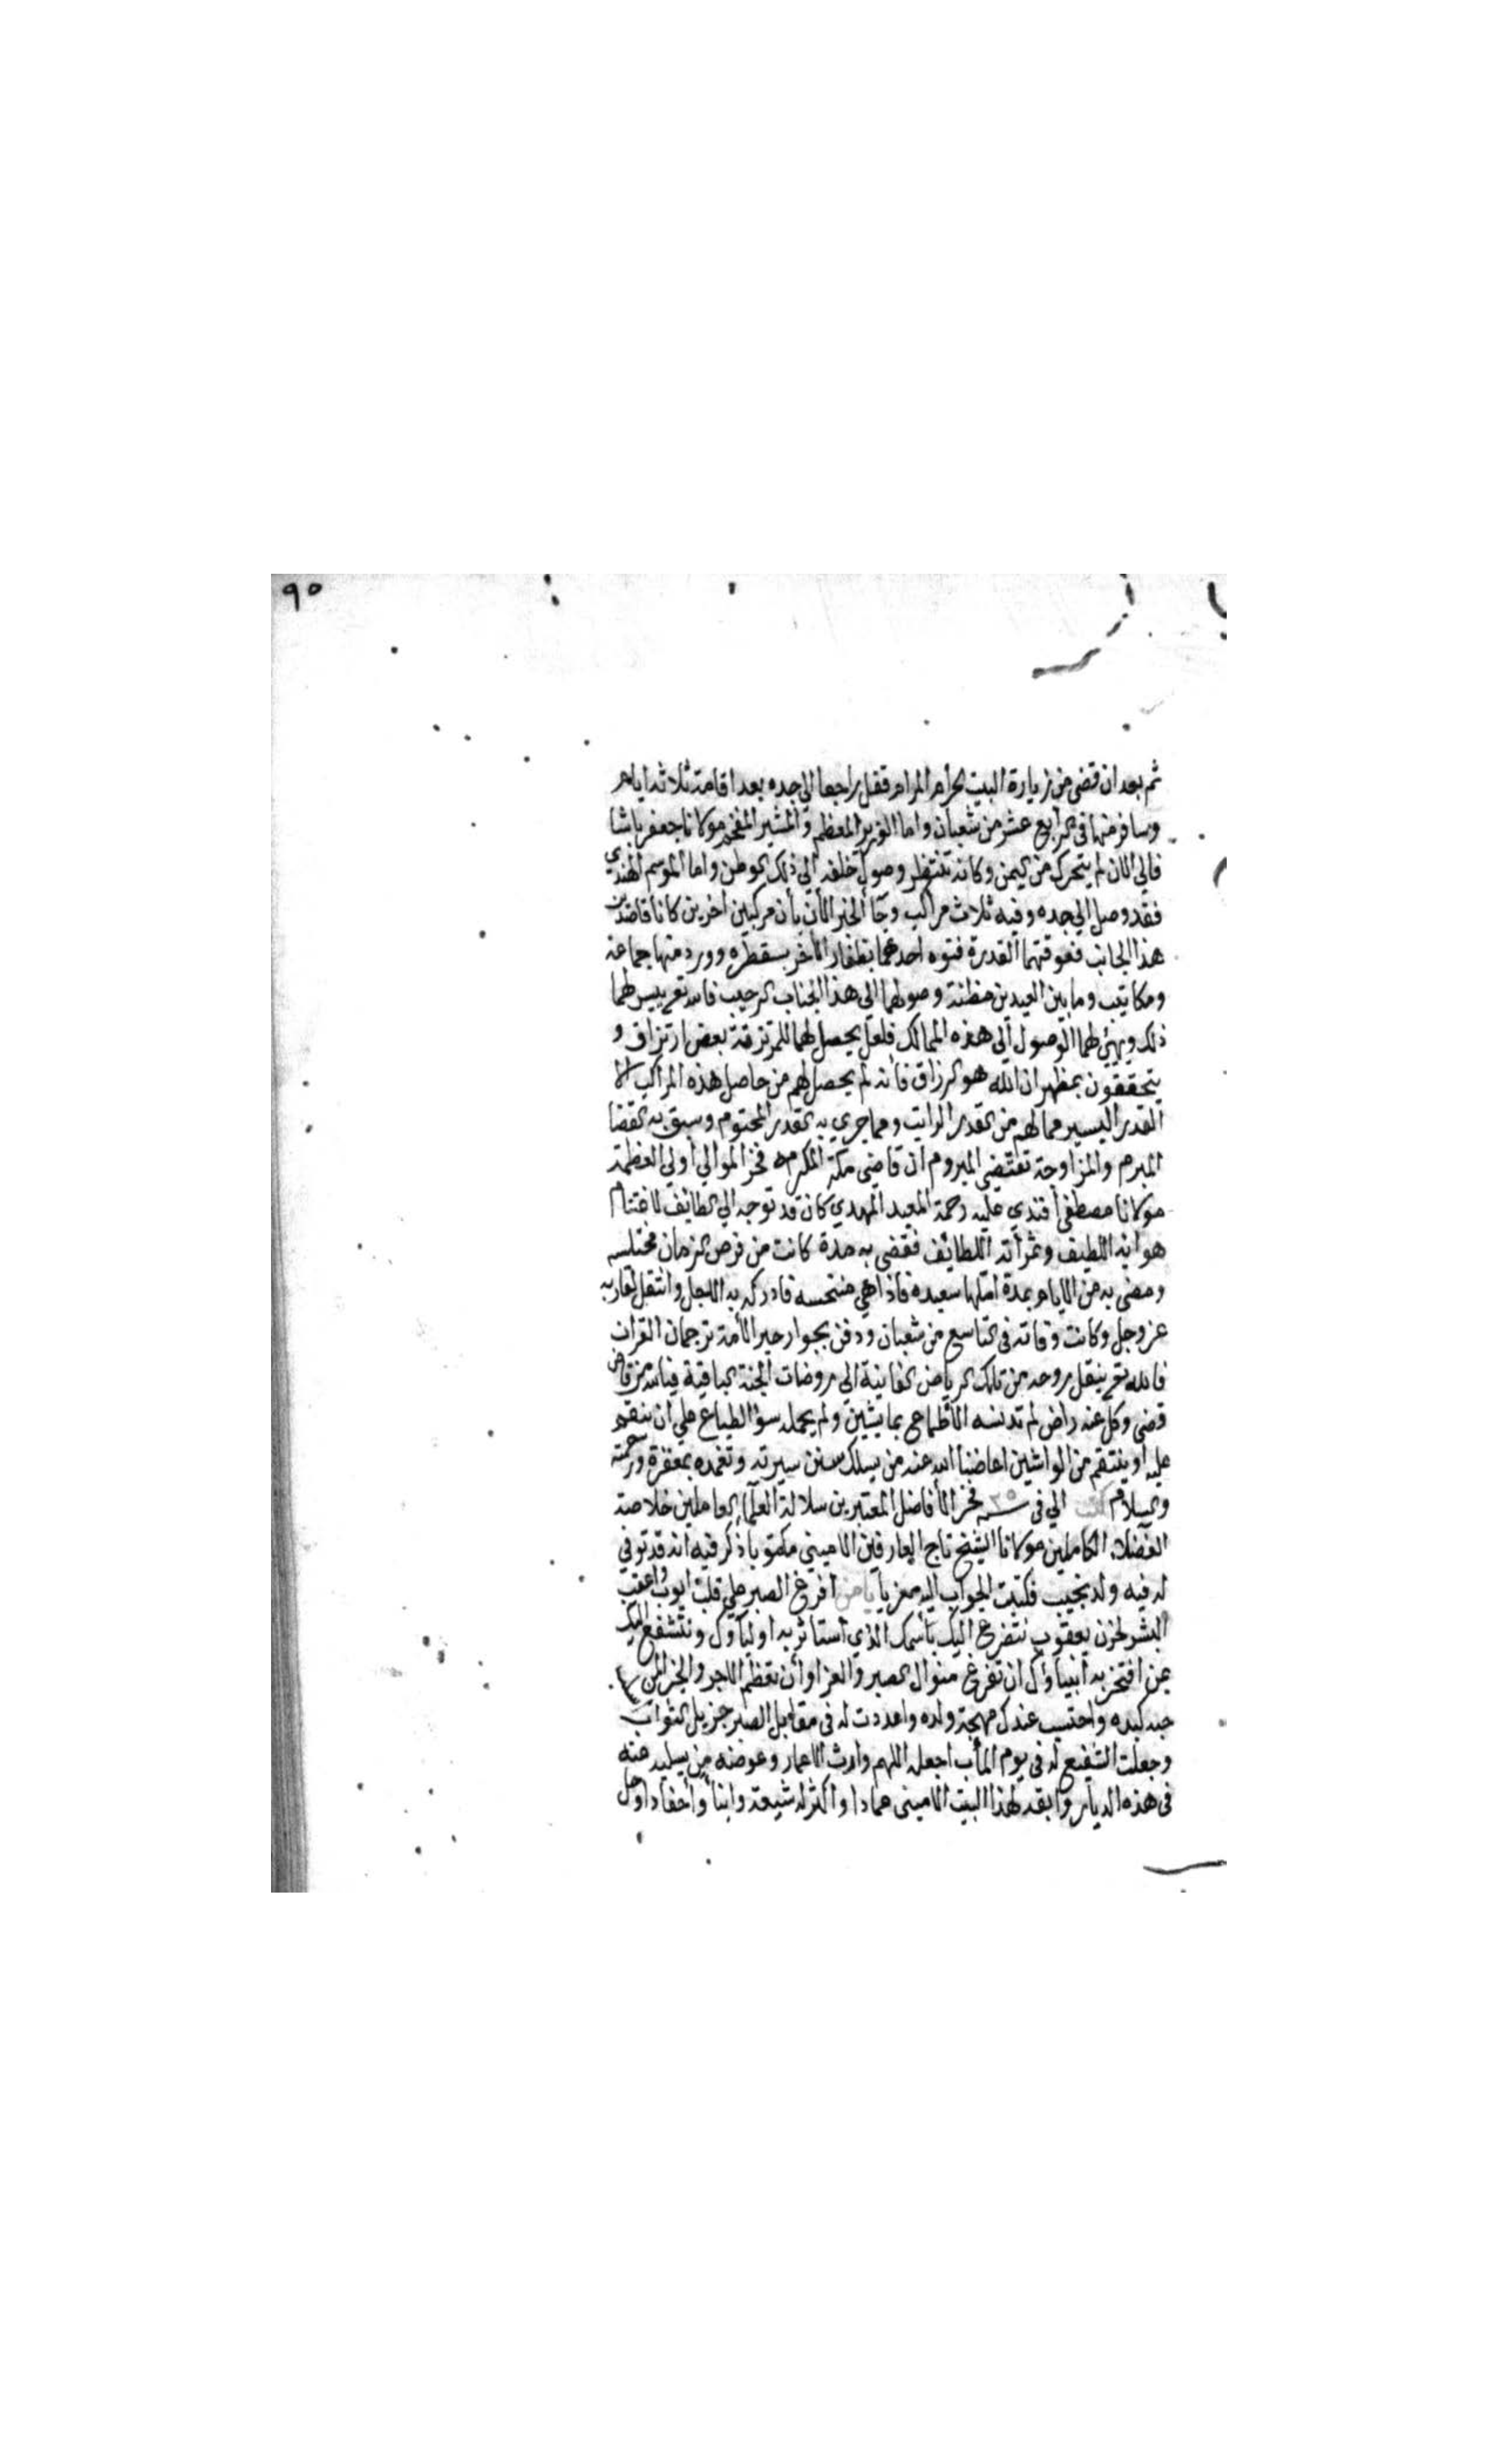 ٩٥
ثم بعد ان قضى من زيارة البيت الحرام المرام قفل راجعا الى جده بعد اقامة ثلاثة ايام
وسافر منها في الرابع عشر من شعبان واما الوزير المعظم والمشير المفخم مولانا جعفر باشا
فالى الان لم يتحرك من اليمن وكانه ينتظر وصول خلفه الى ذلك الوطن واما الموسم الهندي
فقد وصل الى جده وفيه ثلاث مراكب وجا الخبر الان بأن مركبين اخرين كانا قاصدين
هذا الجانب فعوقتهما القدرة فتوه احدهما بظفار الاخر بسقطره وورد منها جماعة
ومكاتيب وما بين العيدين مظنة وصولهما الى هذا الجناب الرحيب فالله تع ييسر لهما
ذلك ويهيئ لهما الوصول الى هذه الممالك فلعل يحصل لهما للمرتزقة بعض ارتزاق و
يتحققون بمظهر ان الله هو الرزاق فانه لم يحصل لهم من حاصل هذه المراكب الا
القدر اليسير مما لهم من القدر الراتب ومما جرى به القدر المحتوم وسبق به القضا
المبرم والمزاوجة تقتضي المبروم ان قاضي مكة المكرمه فخر الموالي اولي العظمة
مولانا مصطفى افندي عليه رحمة المعيد المهدي كان قد توجه الى الطائف لاغتنام
هوائه اللطيف وثمراته اللطائف فقضى به مدة كانت من فرص الزمان مختلسه
ومضى به من الايام بمدة امّلها سعيده فاذا هي منتحسه فادركه به الاجل وانتقل لقا ربه
عز وجل وكانت وفاته في التاسع من شعبان ودفن بجوار حبر الامة ترجمان القران
فالله تع ينقل روحه من تلك الرياض الفانية الى روضات الجنة الباقية فيالله من قاض
قضى وكل عنه راض لم تدنسه الاطماع بما يشين ولم يحمله سؤ الطباع على ان ينقم
عليه او ينتقم من الواشين اعاضنا الله عنه من يسلك سنن سيرته وتغمده بمغفرة ورحمته
والسلام كتب الي في سنة ٢٥ فخر الافاضل المعتبرين سلالة العلماء العاملين خلاصة
الفضلاء الكاملين مولانا الشيخ تاج العارفين الاميني مكتوبا ذكر فيه انه قد توفي
له فيه ولد نجيب فكتبت الجواب اليه معزيا يا من افرغ الصبر على قلب ايوب واعقب
البشر لحزن يعقوب نتضرع اليك باسمك الذي استاثر به اولياؤك ونتشفع اليك
بمن افتخر به انبياؤك ان تفرغ منوال الصبر والعزا وان تعظم الاجر والجزا لمن
جبد كبده واحتسب عندك مهجة ولده واعددت له في مقابل الصبر جزيل الثواب
وجعلت الشفيع له في يوم المأب اجعله اللهم وارث الاعمار وعوضه من يسليه عنه
في هذه الديار وابقه لهذا البيت الاميني عمادا واكثر له شيعة وابنا واحفادا وحل